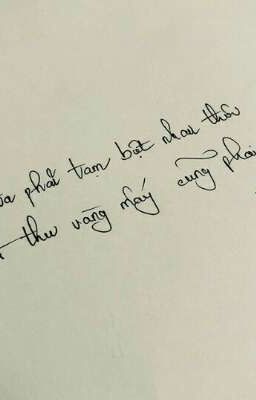 phải tạm biệt nhau thôi
thu vàng mấy cũng phải